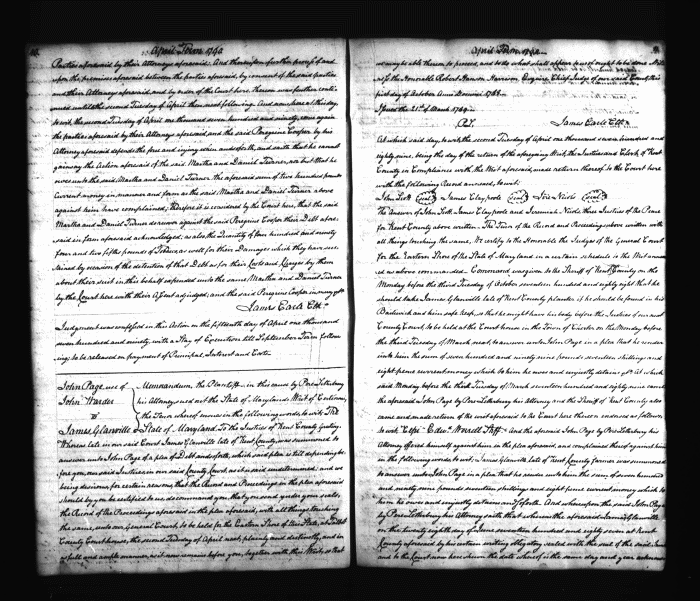 April Term 1790
Parties aforesaid by their Attornies aforesaid. And thereupon further process of and
upon the premises aforesaid between the parties aforesaid, by consent of the said parties
and their Attornies aforesaid, and by order of the Court here. Thereon was further conti-
nued until the second Tuesday of April then next following. And now here at this day,
to wit, the second Tuesday of April one thousand seven hundred and ninety, come again
the parties aforesaid by their Attornies aforesaid, and the said Peregrine Cooper by his
Attorney aforesaid defends the force and injury when and so forth, and saith that he cannot
gainsay the Action aforesaid of the said Martha and Daniel Turner, nor but that he
owes unto the said Martha and Daniel Turner the aforesaid sum of two hundred pounds
Current money in manner and form as the said Martha and Daniel Turner above
against him have complained; Therefore it is considered by the Court here, that the said
Martha and Daniel Turner do recover against the said Peregrine Cooper their Debt afore-
said in form aforesaid acknowledged; as also the Quantity of four hundred and ninety
four and two fifths pounds of Tobacco as well for their Damages which they have sus-
tained by occasion of the detention of that Debt as for their Costs and Charges by them
about their suit in this behalf expended unto the same Martha and Daniel Turner
by the Court here with their Assent adjudged; and the said Peregrine Cooper in mercy &c
James Earle Clk
Judgment was confessed in this Action on the fifteenth day of April one thousand
seven hundred and ninety, with a Stay of Execution till September Term follow-
ing; to be released on payment of Principal, Interest and Costs
John Page use of
John Warder
vs
James Glanville
Memorandum, the Plaintiff in this cause by Pere Letherbury
his Attorney sued out the State of Maryland's Writ of Certiorari,
the Tenor whereof ensues in the following words, to wit, The
State of Maryland To the Justices of Kent County greeting.
Whereas late in our said Court James Glanville late of Kent County, was summoned to
answer unto John Page of a plea of Debt and so forth, which said plea is still depending be-
fore you, our said Justices in our said County Court, as it is said undetermined: and we
being desirous, for certain reasons, that the Record and Proceedings in the plea aforesaid
should by you be certified to us, do command you, that you send under your seals,
the Record of the Proceedings aforesaid in the plea aforesaid, with all things touching
the same, unto our General Court, to be held for the Eastern Shore of this State, at Talbot
County Court house, the second Tuesday of April next, plainly and distinctly, and in
as full and ample manner, as it now remains before you, together with this Writ; so that
April Term 1790
we may be able thereon to proceed, and to do what shall appear to us of right ought to be done. Wit-
ness the Honorable Robert Hanson Harrison Esquire, Chief Judge of our said Court, this
first day of October Anno Domini 1788
Issued the 21st of March 1789
James Earle Clk
At which said day, to wit, the second Tuesday of April one thousand seven hundred and
eighty nine, being the day of the return of the aforegoing Writ, the Justices and Clerk of Kent
County in Compliance with the Writ aforesaid, made return thereof to the Court here
with the following Record annexed, to wit:
John Scott (Seal) James Claypoole (Seal) Jere Nicols (Seal)
The Answer of John Scott, James Claypoole and Jeremiah Nicols, three Justices of the Peace
for Kent County above written. The Tenor of the Record and Proceedings above written with
all things touching the same, We certify to the Honorable the Judges of the General Court
for the Eastern Shore of the State of Maryland in a certain schedule to this Writ annex-
ed as above commanded. Command was given to the Sheriff of Kent County on the
Monday before the third Tuesday of October seventeen hundred and eighty eight that he
should take James Glanville late of Kent County planter if he should be found in his
Bailiwick and him safe keep, so that he might have his body before the Justices of our next
County Court, to be held at the Court house in the Town of Chester on the Monday before
the third Tuesday of March next, to answer unto John Page in a plea that he render
unto him the sum of seven hundred and ninety nine pounds seventeen shillings and
eight pence current money which to him he owes and unjustly detains &c. At which
said Monday before the third Tuesday of March seventeen hundred and eighty nine came
the aforesaid John Page by Pere Letherbury his attorney and the Sheriff of Kent County also
came and made return of the writ aforesaid to the Court here thereon endorsed as follows,
to wit, "Cepi" Edwd Worrell Shff. And the aforesaid John Page by Pere Letherbury his
Attorney offered himself against him in the plea aforesaid, and complained thereof against him
in the following words, to wit; James Glanville late of Kent County farmer was summoned
to answer unto John Page in a plea that he render unto him the sum of seven hundred
and ninety nine pounds seventeen shillings and eight pence current money which to
him he owes and unjustly detains and so forth. And whereupon the said John Page
by Pere Letherbury his Attorney saith that whereas the aforesaid James Glanville
on the twenty eighth day of June seventeen hundred and eighty seven at Kent
County aforesaid by his certain writing obligatory sealed with the seal of the said James
and to the Court now here shewn the date whereof is the same day and year aforesaid